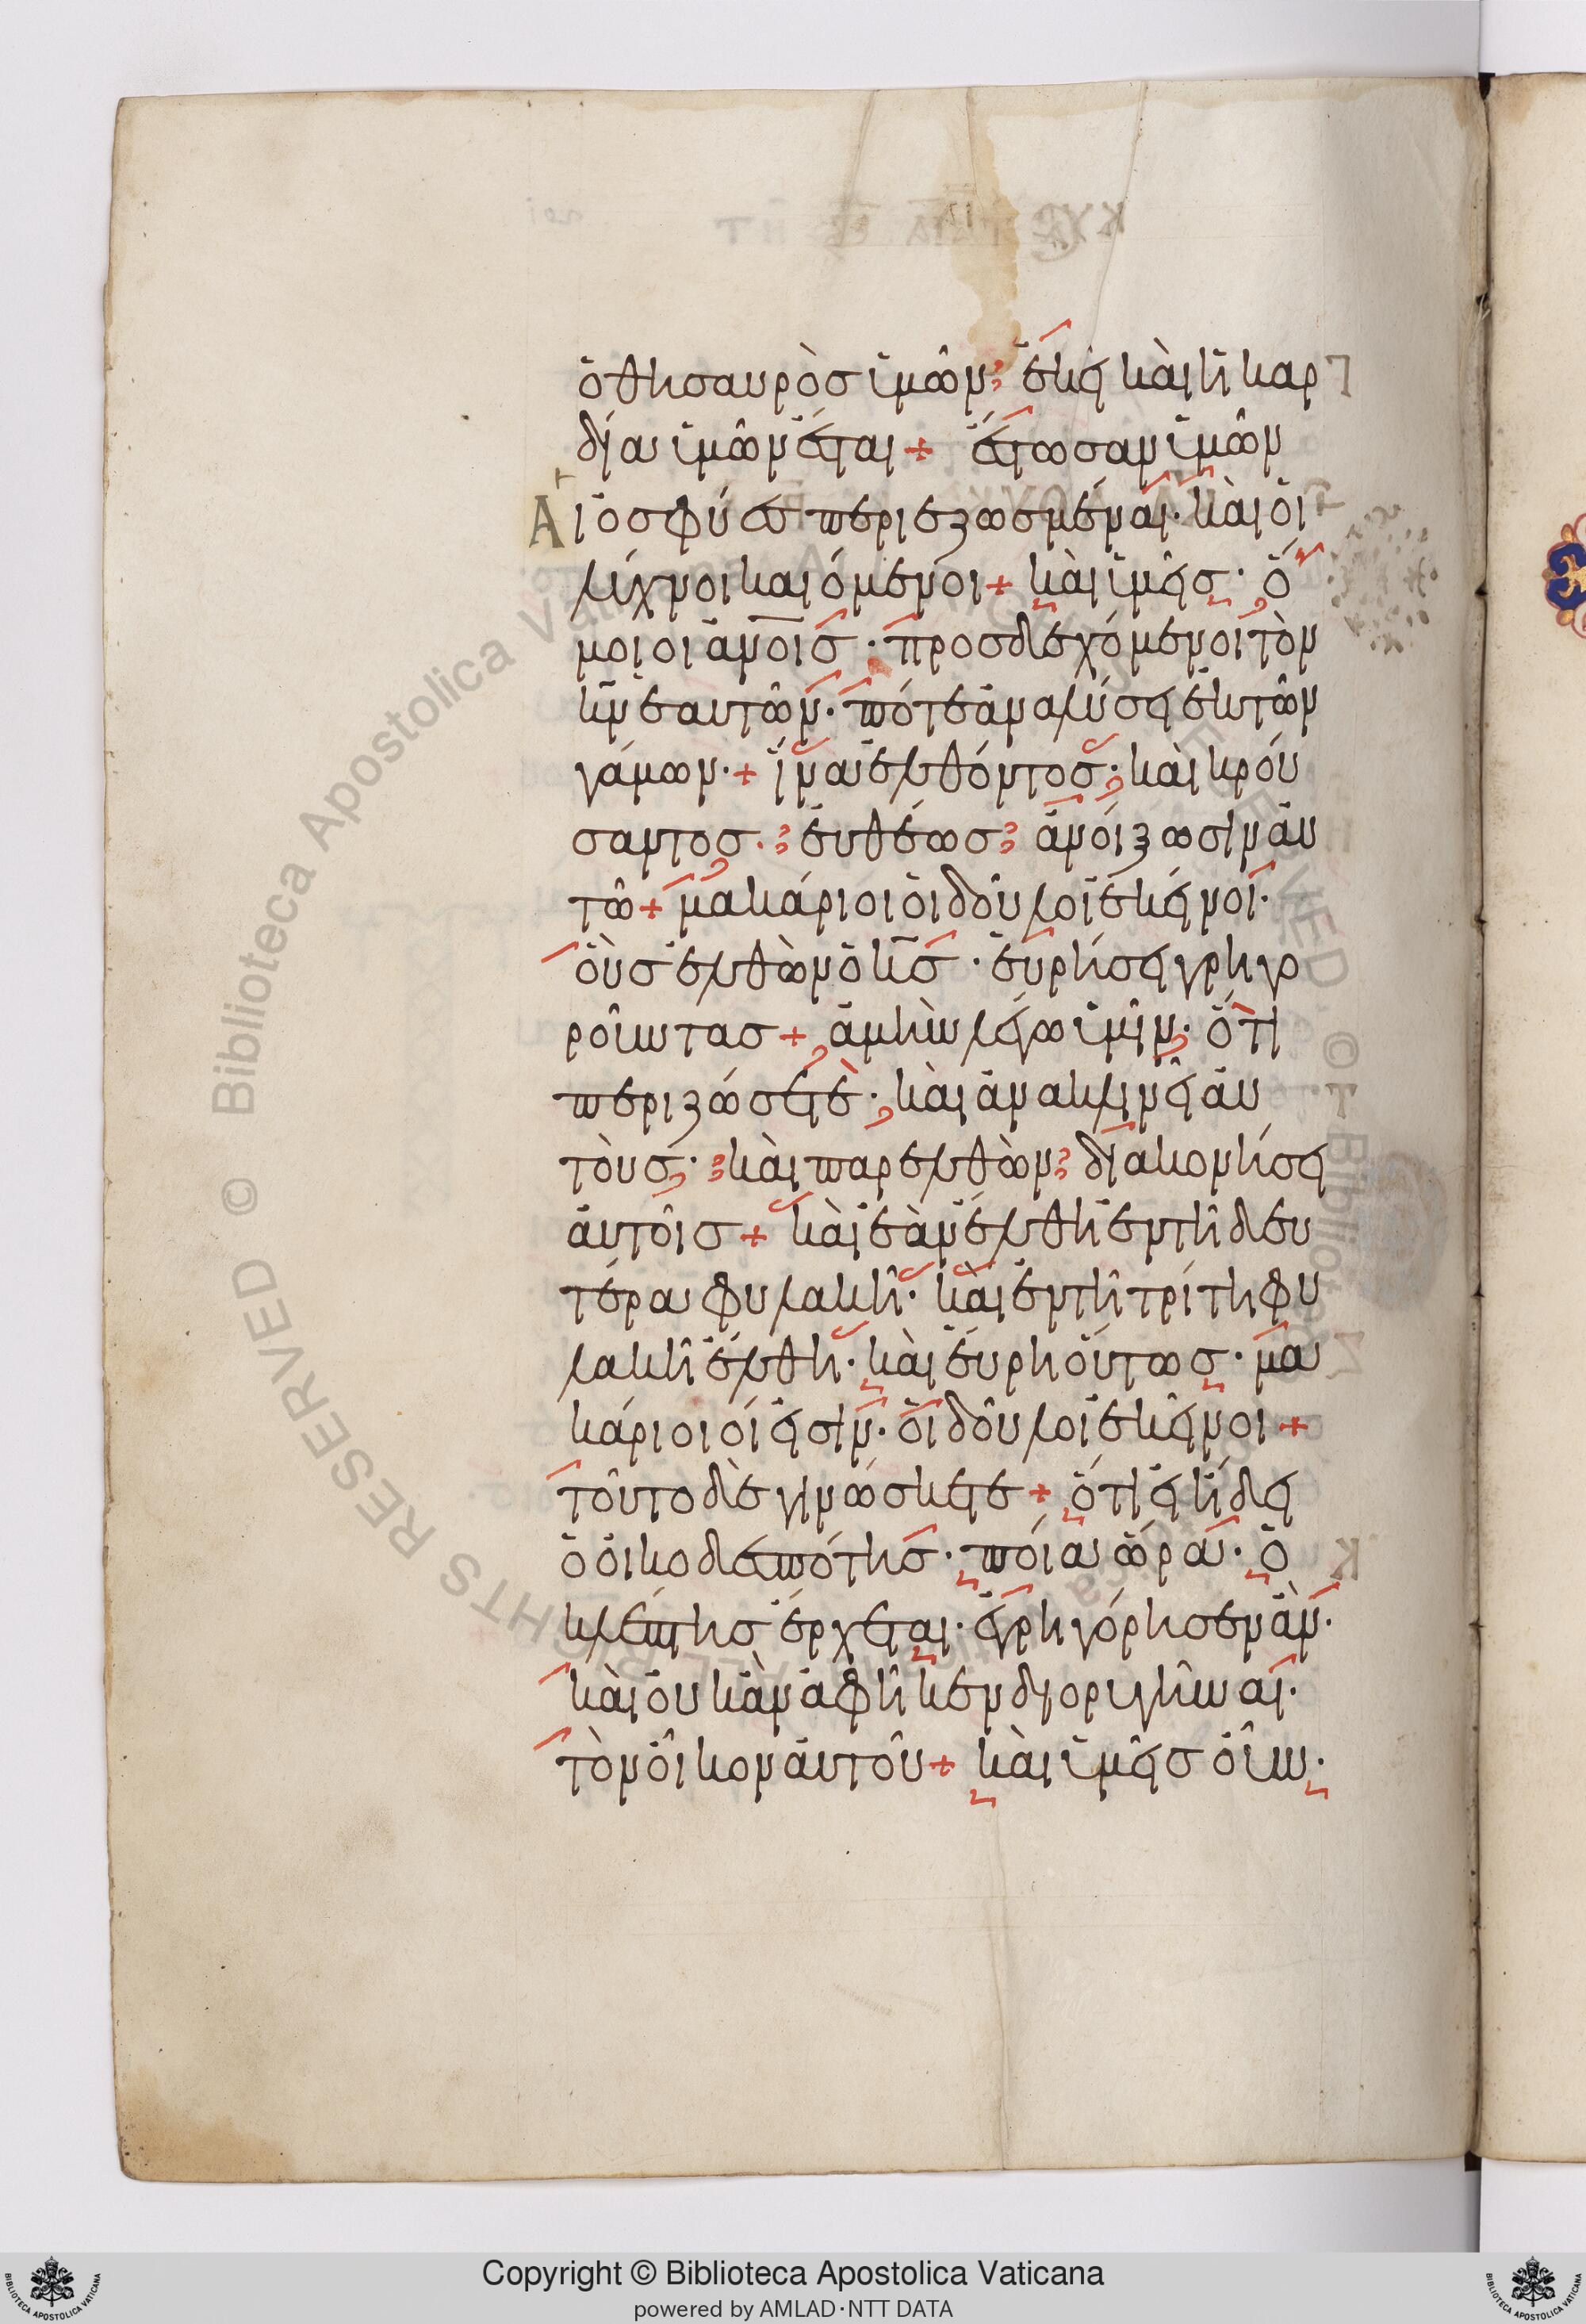 ὁ θησαυρὸσ ὑμῶν ἐκεῖ καὶ ἡ καρ
δία ὑμῶν ἔσται + ἔστωσαν ὑμῶν
Αἱ ὀσφύεσ περιεζωσμέναι· καὶ οἱ
λύχνοι καιόμενοι + καὶ ὑμεῖσ· ὅ
μοιοι ἀν̅ο̅ισ· προσδεχόμενοι τὸν
κ̅ν̅ ἑαυτῶν· πότε ἀναλύσει ἐκ τῶν
γάμων· + ἵνα ἐλθόντοσ· καὶ κρού
σαντοσ· εὐθέωσ ἀνοίξωσιν αὐ
τῶ + μακάριοι οἱ δοῦλοι ἐκεῖνοι·
οὓσ ἐλθὼν ὁ κ̅σ̅· εὑρήσει γρηγο
ροῦντασ + ἀμὴν λέγω ὑμῖν· ὅτι
περιζώσεται· καὶ ἀνακλινεῖ αὐ
τούσ· καὶ παρελθὼν διακονήσει
αὐτοῖσ + καὶ ἐὰν ἔλθη ἐν τῆ δευ
τέρα φυλακῆ· καὶ ἐν τῆ τρίτη φυ
λακῆ ἔλθη· καὶ εὕρη οὕτωσ· μα
κάριοί εἰσιν· οἱ δοῦλοι ἐκεῖνοι +
τοῦτο δὲ γινώσκετε + ὅτι εἰ ἤδει
ὁ οἰκοδεσπότησ· ποία ὥρα· ὁ
κλέπτησ ἔρχεται· ἐγρηγόρησεν ἄν·
καὶ οὐκ ἂν ἀφῆκεν διορυγῆναι·
τὸν οἶκον αὐτοῦ + καὶ ὑμεῖσ οὖν·
Copyright © Biblioteca Apostolica Vaticana
powered by AMLAD·NTT DATA